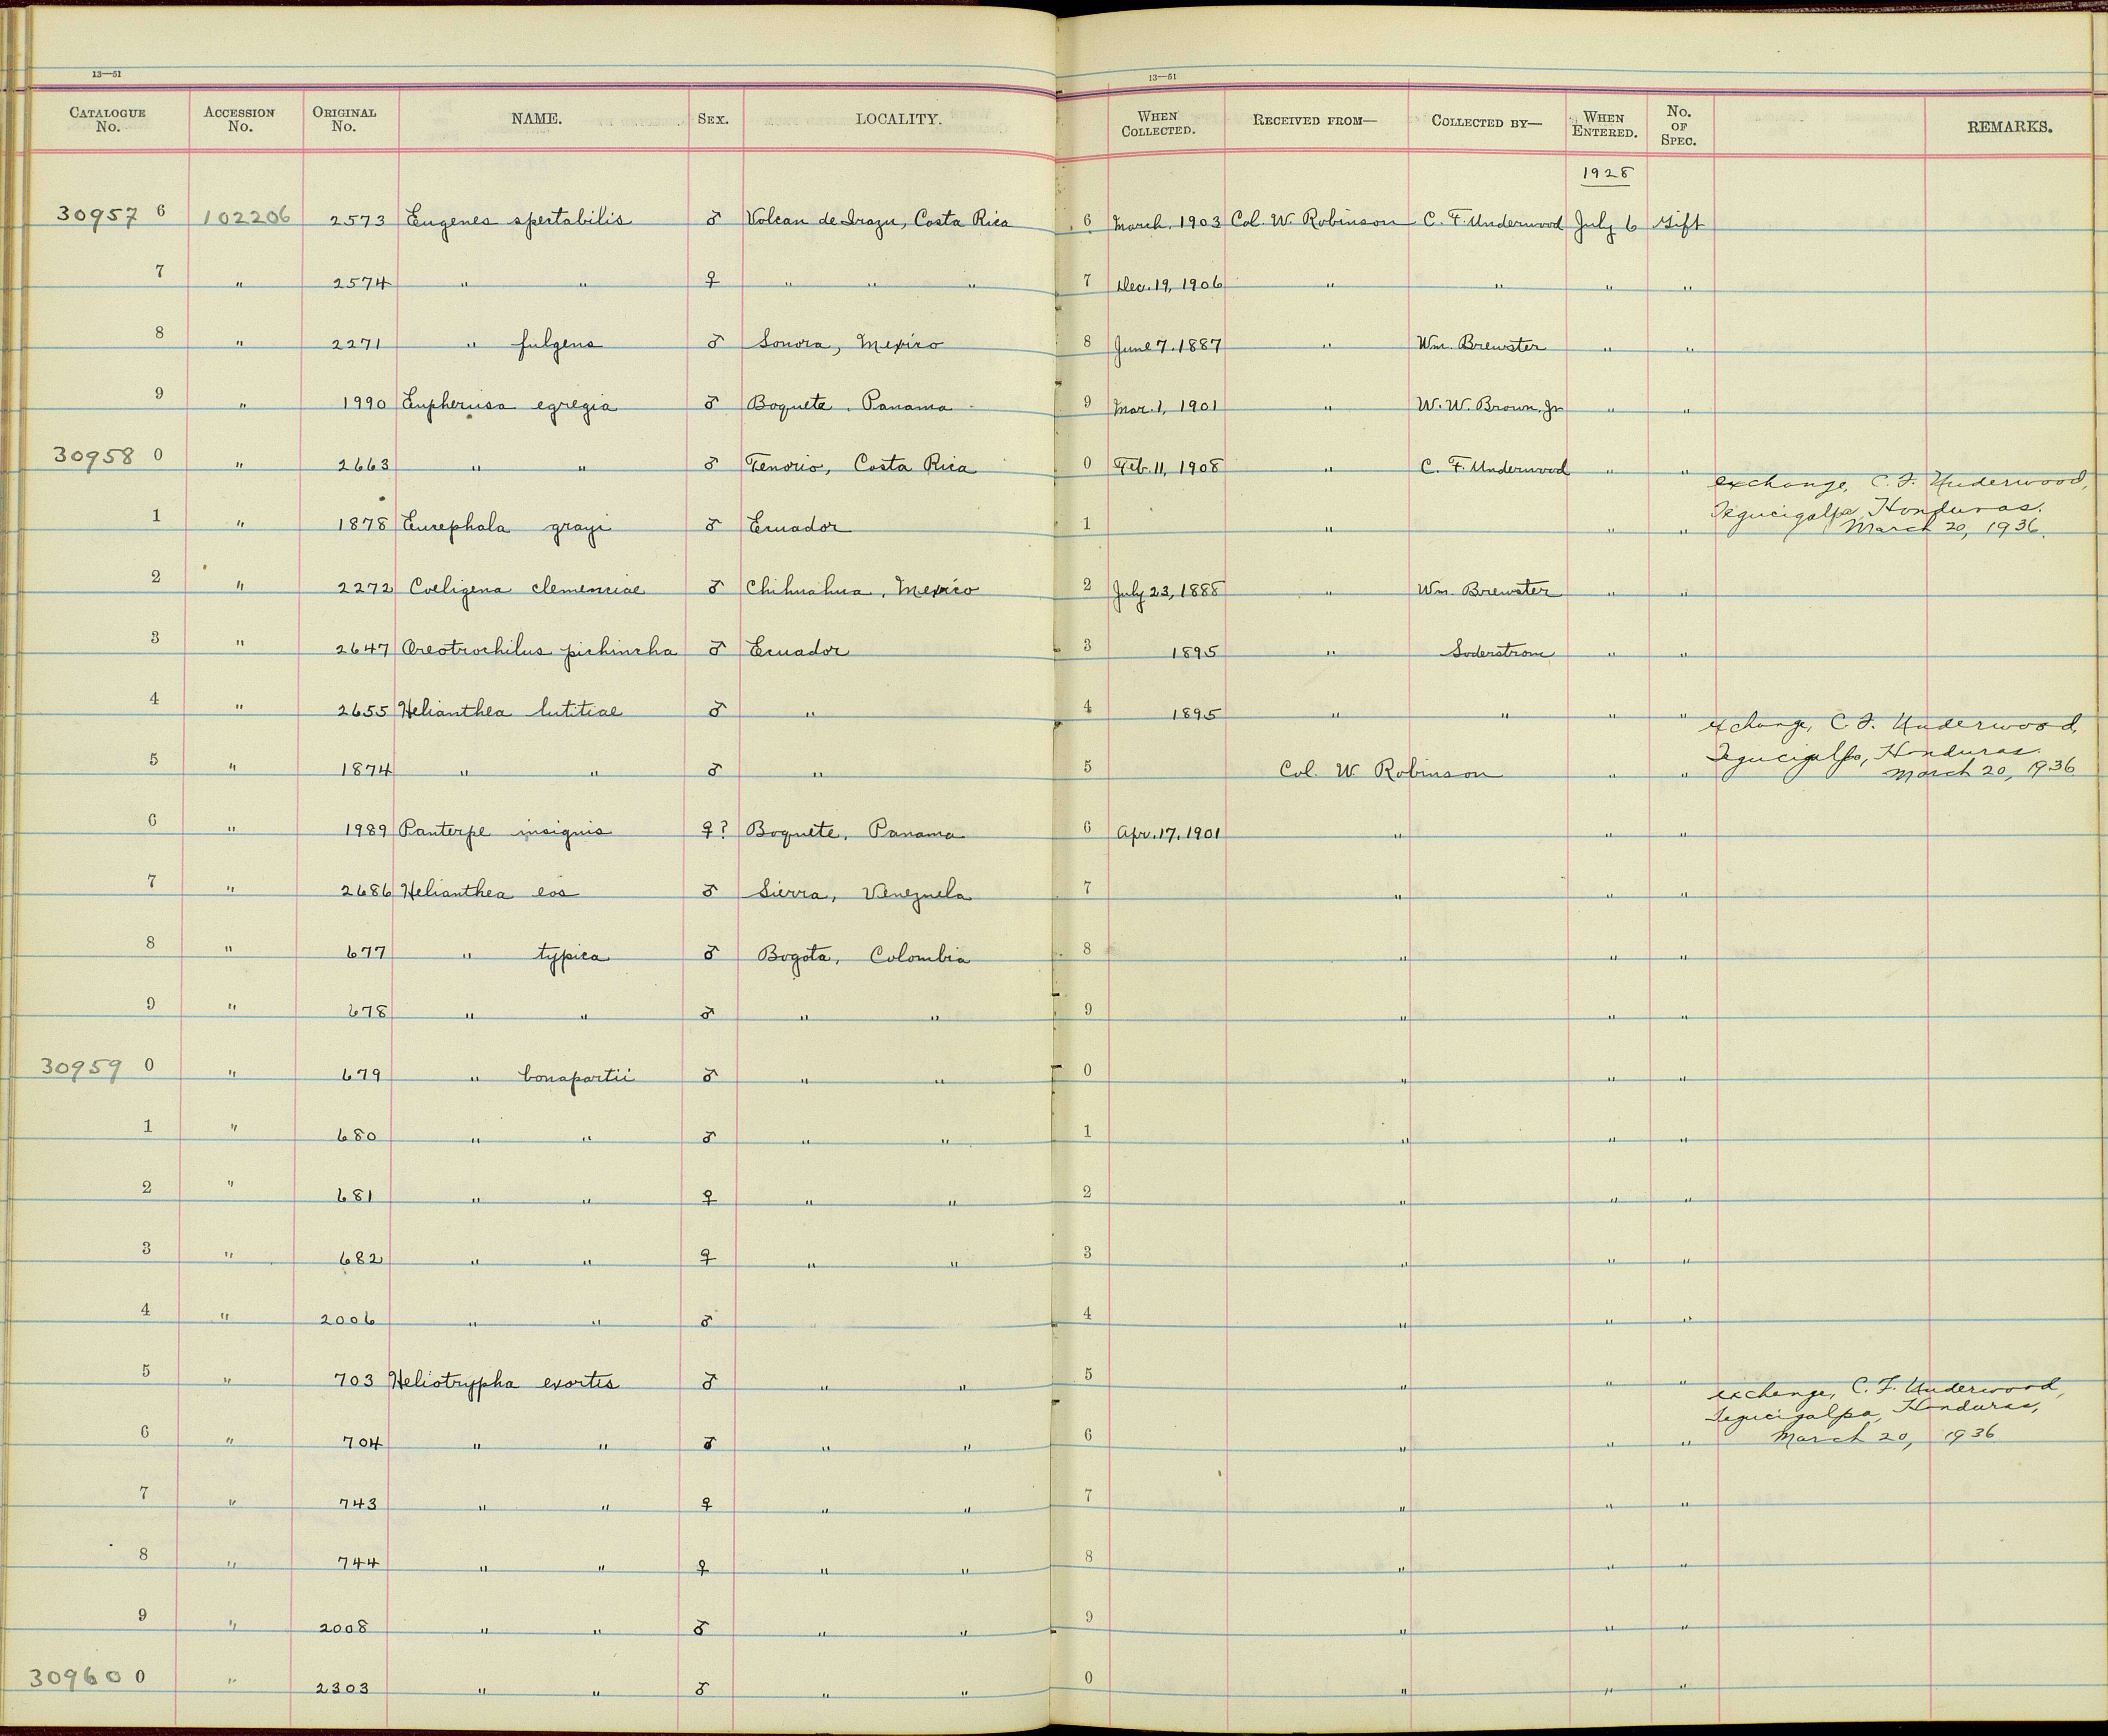 13—51 13—51
CATALOGUE No. ACCESSION No. ORIGINAL No. NAME. SEX. LOCALITY. WHEN COLLECTED. RECEIVED FROM— COLLECTED BY— WHEN ENTERED. No. OF SPEC. REMARKS.
1928
30957 6 102206 2573 Eugenes spectabilis ♂ Volcan de Irazu, Costa Rica 6 March. 1903 Col. W. Robinson C. F. Underwood July 6 Gift
7 " 2574 " " ♀ " " " 7 Dec. 19, 1906 " " " "
8 " 2271 " fulgens ♂ Sonora, Mexico 8 June 7. 1887 " Wm. Brewster " "
9 " 1990 Eupherusa egregia ♂ Boquete, Panama 9 Mar. 1, 1901 " W. W. Brown, Jr " "
30958 0 " 2663 " " ♂ Tenorio, Costa Rica 0 Feb. 11, 1908 " C. F. Underwood " "
1 " 1878 Eucephala grayi ♂ Ecuador 1 " " " exchange, C. F. Underwood,
Tegucigalpa, Honduras.
March 20, 1936.
2 " 2272 Coeligena clemenciae ♂ Chihuahua, Mexico 2 July 23, 1888 " Wm. Brewster " "
3 " 2647 Oreotrochilus pichincha ♂ Ecuador 3 1895 " Soderstrom " "
4 " 2655 Helianthea lutitiae ♂ " 4 1895 " " " "
5 " 1874 " " ♂ " 5 Col. W Robinson " " exchange, C. F. Underwood,
Tegucigalpa, Honduras.
March 20, 1936
6 " 1989 Panterpe insignis ♀? Boquete, Panama 6 Apr. 17. 1901 " " "
7 " 2686 Helianthea eos ♂ Sierra, Venezuela 7 " " "
8 " 677 " typica ♂ Bogota, Colombia 8 " " "
9 " 678 " " ♂ " " 9 " " "
30959 0 " 679 " bonapartii ♂ " " 0 " " "
1 " 680 " " ♂ " " 1 " " "
2 " 681 " " ♀ " " 2 " " "
3 " 682 " " ♀ " " 3 " " "
4 " 2006 " " ♂ 4 " " "
5 " 703 Heliotrypha exortis ♂ " " 5 " " "
exchange, C. F. Underwood,
Tegucigalpa, Honduras,
6 " 704 " " ♂ " " 6 " " " March 20, 1936
7 " 743 " " ♀ " " 7 " " "
8 " 744 " " ♀ " " 8 " " "
9 " 2008 " " ♂ " " 9 " " "
30960 0 " 2303 " " ♂ " " 0 " " "